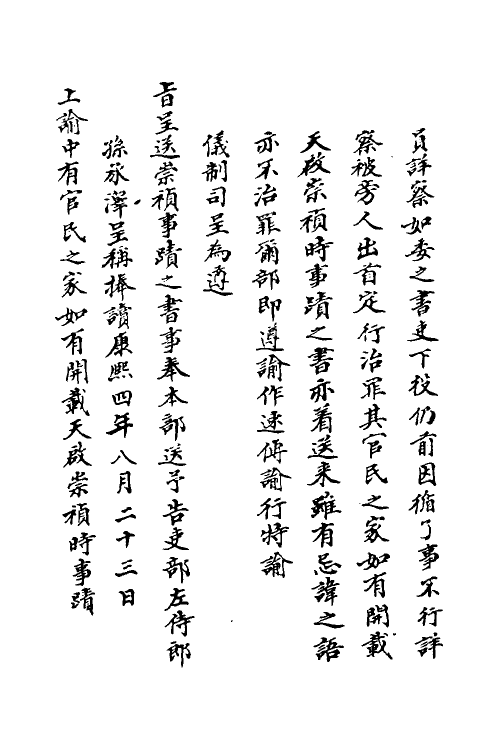 員詳察如委之書吏下役仍前因循了事不行詳
察被旁人出首定行治罪其官民之家如有開載
天啟崇禎時事蹟之書亦着送来雖有忌諱之語
亦不治罪爾部即遵諭作速傳諭行特諭
儀制司呈為遵
旨呈送崇禎事蹟之書事奉本部送予告吏部左侍郎
孫承澤呈稱捧讀康熙四年八月二十三日
上諭中有官民之家如有開載天啟崇禎時事蹟